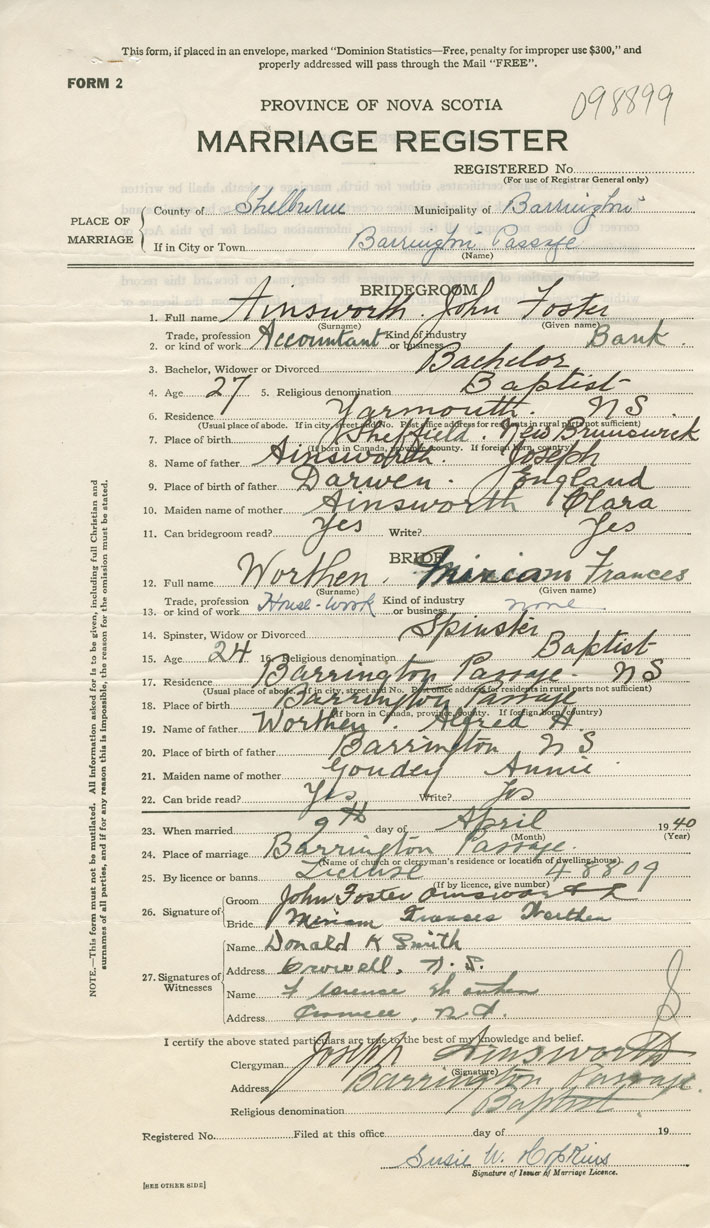 This form, if placed in an envelope, marked "Dominion Statistics—Free, penalty for improper use $300," and
properly addressed will pass through the Mail "FREE".
FORM 2
098899
PROVINCE OF NOVA SCOTIA
MARRIAGE REGISTER
REGISTERED No.
(For use of Registrar General only)
PLACE OF MARRIAGE
County of Shelburne Municipality of Barrington
If in City or Town Barrington Passage
(Name)
BRIDEGROOM
1. Full name Ainsworth John Foster
(Surname) (Given name)
2. Trade, profession or kind of work Accountant Kind of industry or business Bank
3. Bachelor, Widower or Divorced Bachelor
4. Age 27 5. Religious denomination Baptist
6. Residence Yarmouth. N S
(Usual place of abode. If in city, street and No. Post office address for residents in rural parts not sufficient)
7. Place of birth Sheffield. New Brunswick
(If born in Canada, province, county. If foreign born, country)
8. Name of father Ainsworth. Joseph
9. Place of birth of father Darwen. England
10. Maiden name of mother Ainsworth Clara
11. Can bridegroom read? Yes Write? Yes
BRIDE
12. Full name Worthen. Miriam Frances
(Surname) (Given name)
13. Trade, profession or kind of work House-work Kind of industry or business none
14. Spinster, Widow or Divorced Spinster
15. Age 24 16. Religious denomination Baptist
17. Residence Barrington Passage. N S
(Usual place of abode. If in city, street and No. Post office address for residents in rural parts not sufficient)
18. Place of birth Barrington Passage
(If born in Canada, province, county. If foreign born, country)
19. Name of father Worthen. Alfred H
20. Place of birth of father Barrington N S
21. Maiden name of mother Goudey Annie
22. Can bride read? Yes Write? Yes
23. When married 9th day of April 1940
(Month) (Year)
24. Place of marriage Barrington Passage
(Name of church or clergyman's residence or location of dwelling house)
25. By licence or banns License 48809
(If by licence, give number)
26. Signature of
Groom John Foster Ainsworth
Bride Miriam Frances Worthen
27. Signatures of Witnesses
Name Donald K Smith
Address Crowell, N. S.
Name Florence
Address N.S.
I certify the above stated particulars are true to the best of my knowledge and belief.
Clergyman Joseph Ainsworth
(Signature)
Address Barrington Passage.
Religious denomination Baptist.
Registered No. Filed at this office day of 19
Susie W. Hopkins
Signature of Issuer of Marriage Licence.
[SEE OTHER SIDE]
NOTE.—This form must not be mutilated. All information asked for is to be given, including full Christian and
surnames of all parties, and if for any reason this is impossible, the reason for the omission must be stated.